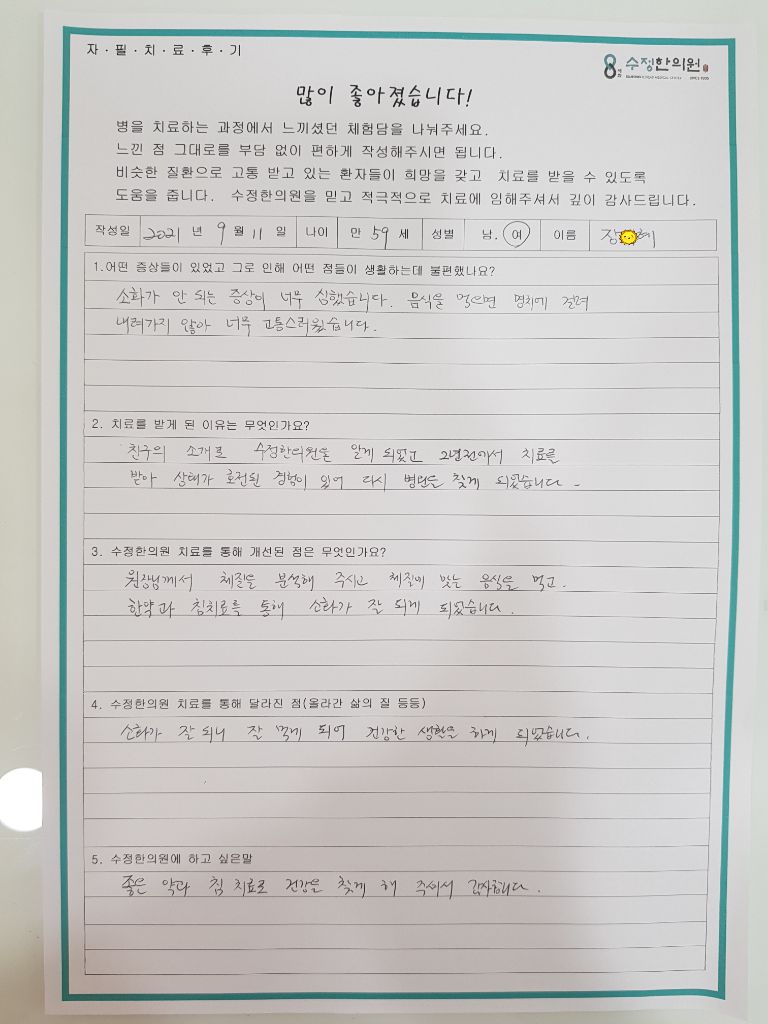 자·필·치·료·후·기
8체질 수정한의원
SINCE 1995
많이 좋아졌습니다!
병을 치료하는 과정에서 느끼셨던 체험담을 나눠주세요.
느낀 점 그대로를 부담 없이 편하게 작성해주시면 됩니다.
비슷한 질환으로 고통 받고 있는 환자들이 희망을 갖고 치료를 받을 수 있도록
도움을 줍니다. 수정한의원을 믿고 적극적으로 치료에 임해주셔서 깊이 감사드립니다.
작성일 2021 년 9 월 11 일 나이 만 59 세 성별 남. 여 이름 장 혜
1.어떤 증상들이 있었고 그로 인해 어떤 점들이 생활하는데 불편했나요?
소화가 안 되는 증상이 너무 심했습니다. 음식을 먹으면 명치에 걸려
내려가지 않아 너무 고통스러웠습니다.
2. 치료를 받게 된 이유는 무엇인가요?
친구의 소개로 수정한의원을 알게 되었고 2년전에서 치료를
받아 상태가 호전된 경험이 있어 다시 병원을 찾게 되었습니다.
3. 수정한의원 치료를 통해 개선된 점은 무엇인가요?
원장님께서 체질을 분석해 주시고 체질에 맞는 음식을 먹고.
한약과 침치료를 통해 소화가 잘 되게 되었습니다.
4. 수정한의원 치료를 통해 달라진 점(올라간 삶의 질 등등)
소화가 잘 되니 잘 먹게 되어 건강한 생활을 하게 되었습니다.
5. 수정한의원에 하고 싶은말
좋은 약과 침 치료로 건강을 찾게 해 주셔서 감사합니다.